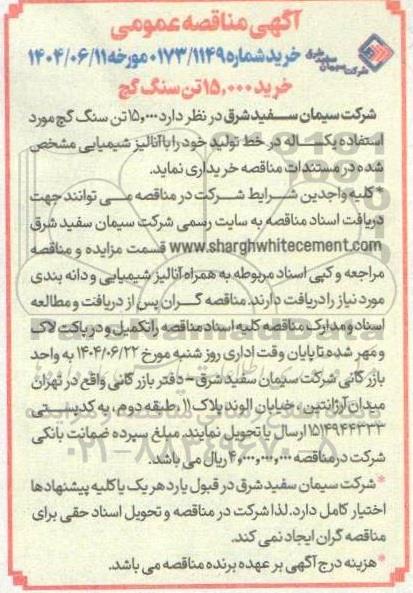 آگهی مناقصه عمومی
خرید شماره ۰۱۷۳/۱۱۴۹ مورخه ۱۴۰۴/۰۶/۱۱
شرکت سیمان سفید شرق
خرید ۱۵,۰۰۰ تن سنگ گچ
شرکت سیمان سفید شرق در نظر دارد ۱۵,۰۰۰ تن سنگ گچ مورد
استفاده یکساله در خط تولید خود را با آنالیز شیمیایی مشخص
شده در مستندات مناقصه خریداری نماید.
* کلیه واجدین شرایط شرکت در مناقصه می توانند جهت
دریافت اسناد مناقصه به سایت رسمی شرکت سیمان سفید شرق
www.sharghwhitecement.com قسمت مزایده و مناقصه
مراجعه و کپی اسناد مربوطه به همراه آنالیز شیمیایی و دانه بندی
مورد نیاز را دریافت دارند. مناقصه گران پس از دریافت و مطالعه
اسناد و مدارک مناقصه کلیه اسناد مناقصه را تکمیل و در پاکت لاک
و مهر شده تا پایان وقت اداری روز شنبه مورخ ۱۴۰۴/۰۶/۲۲ به واحد
بازرگانی شرکت سیمان سفید شرق - دفتر بازرگانی واقع در تهران
میدان آرژانتین، خیابان الوند پلاک ۱۱، طبقه دوم، به کدپستی
۱۵۱۴۹۴۴۳۳۳ ارسال یا تحویل نمایند. مبلغ سپرده ضمانت بانکی
شرکت در مناقصه ۴,۰۰۰,۰۰۰,۰۰۰ ریال می باشد.
* شرکت سیمان سفید شرق در قبول یا رد هر یک یا کلیه پیشنهادها
اختیار کامل دارد. لذا شرکت در مناقصه و تحویل اسناد حقی برای
مناقصه گران ایجاد نمی کند.
* هزینه درج آگهی بر عهده برنده مناقصه می باشد.